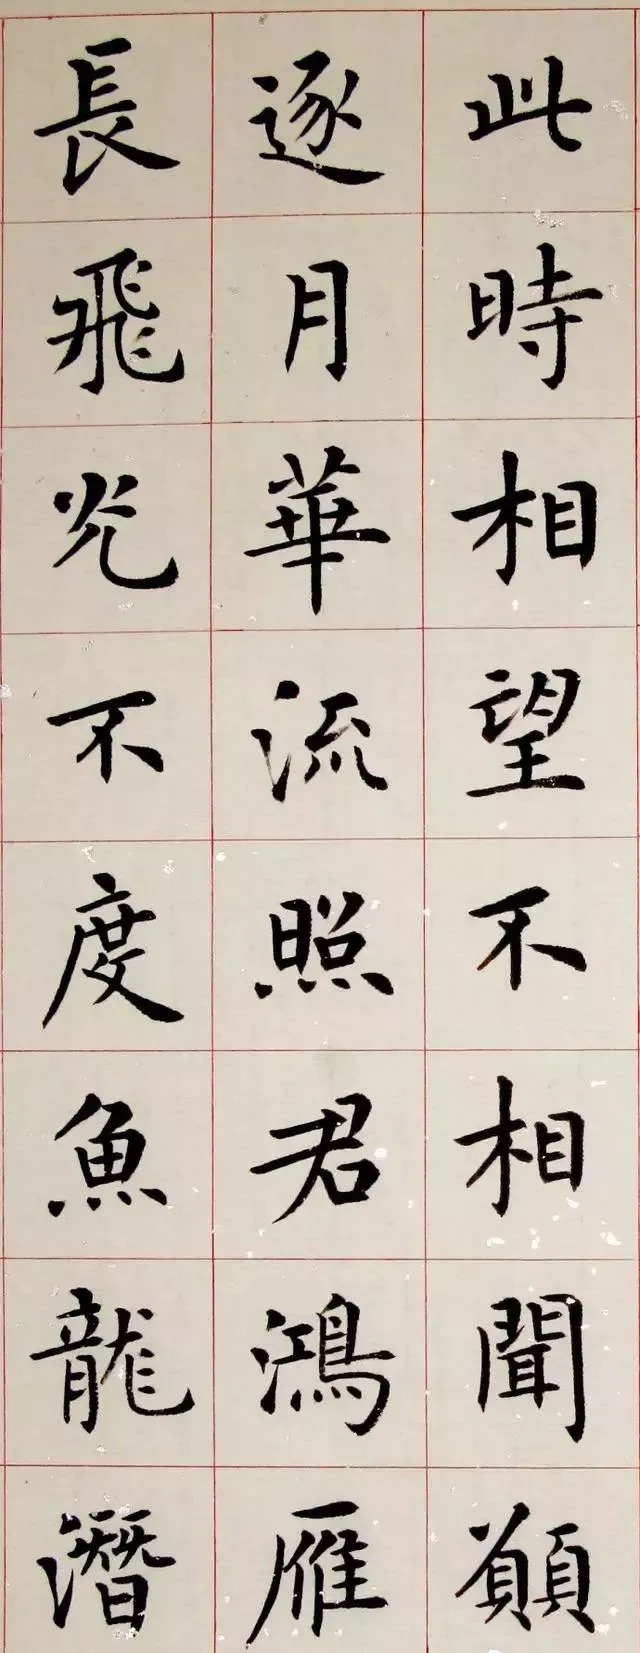 此時相望不相聞願
逐月華流照君鴻雁
長飛光不度魚龍潛